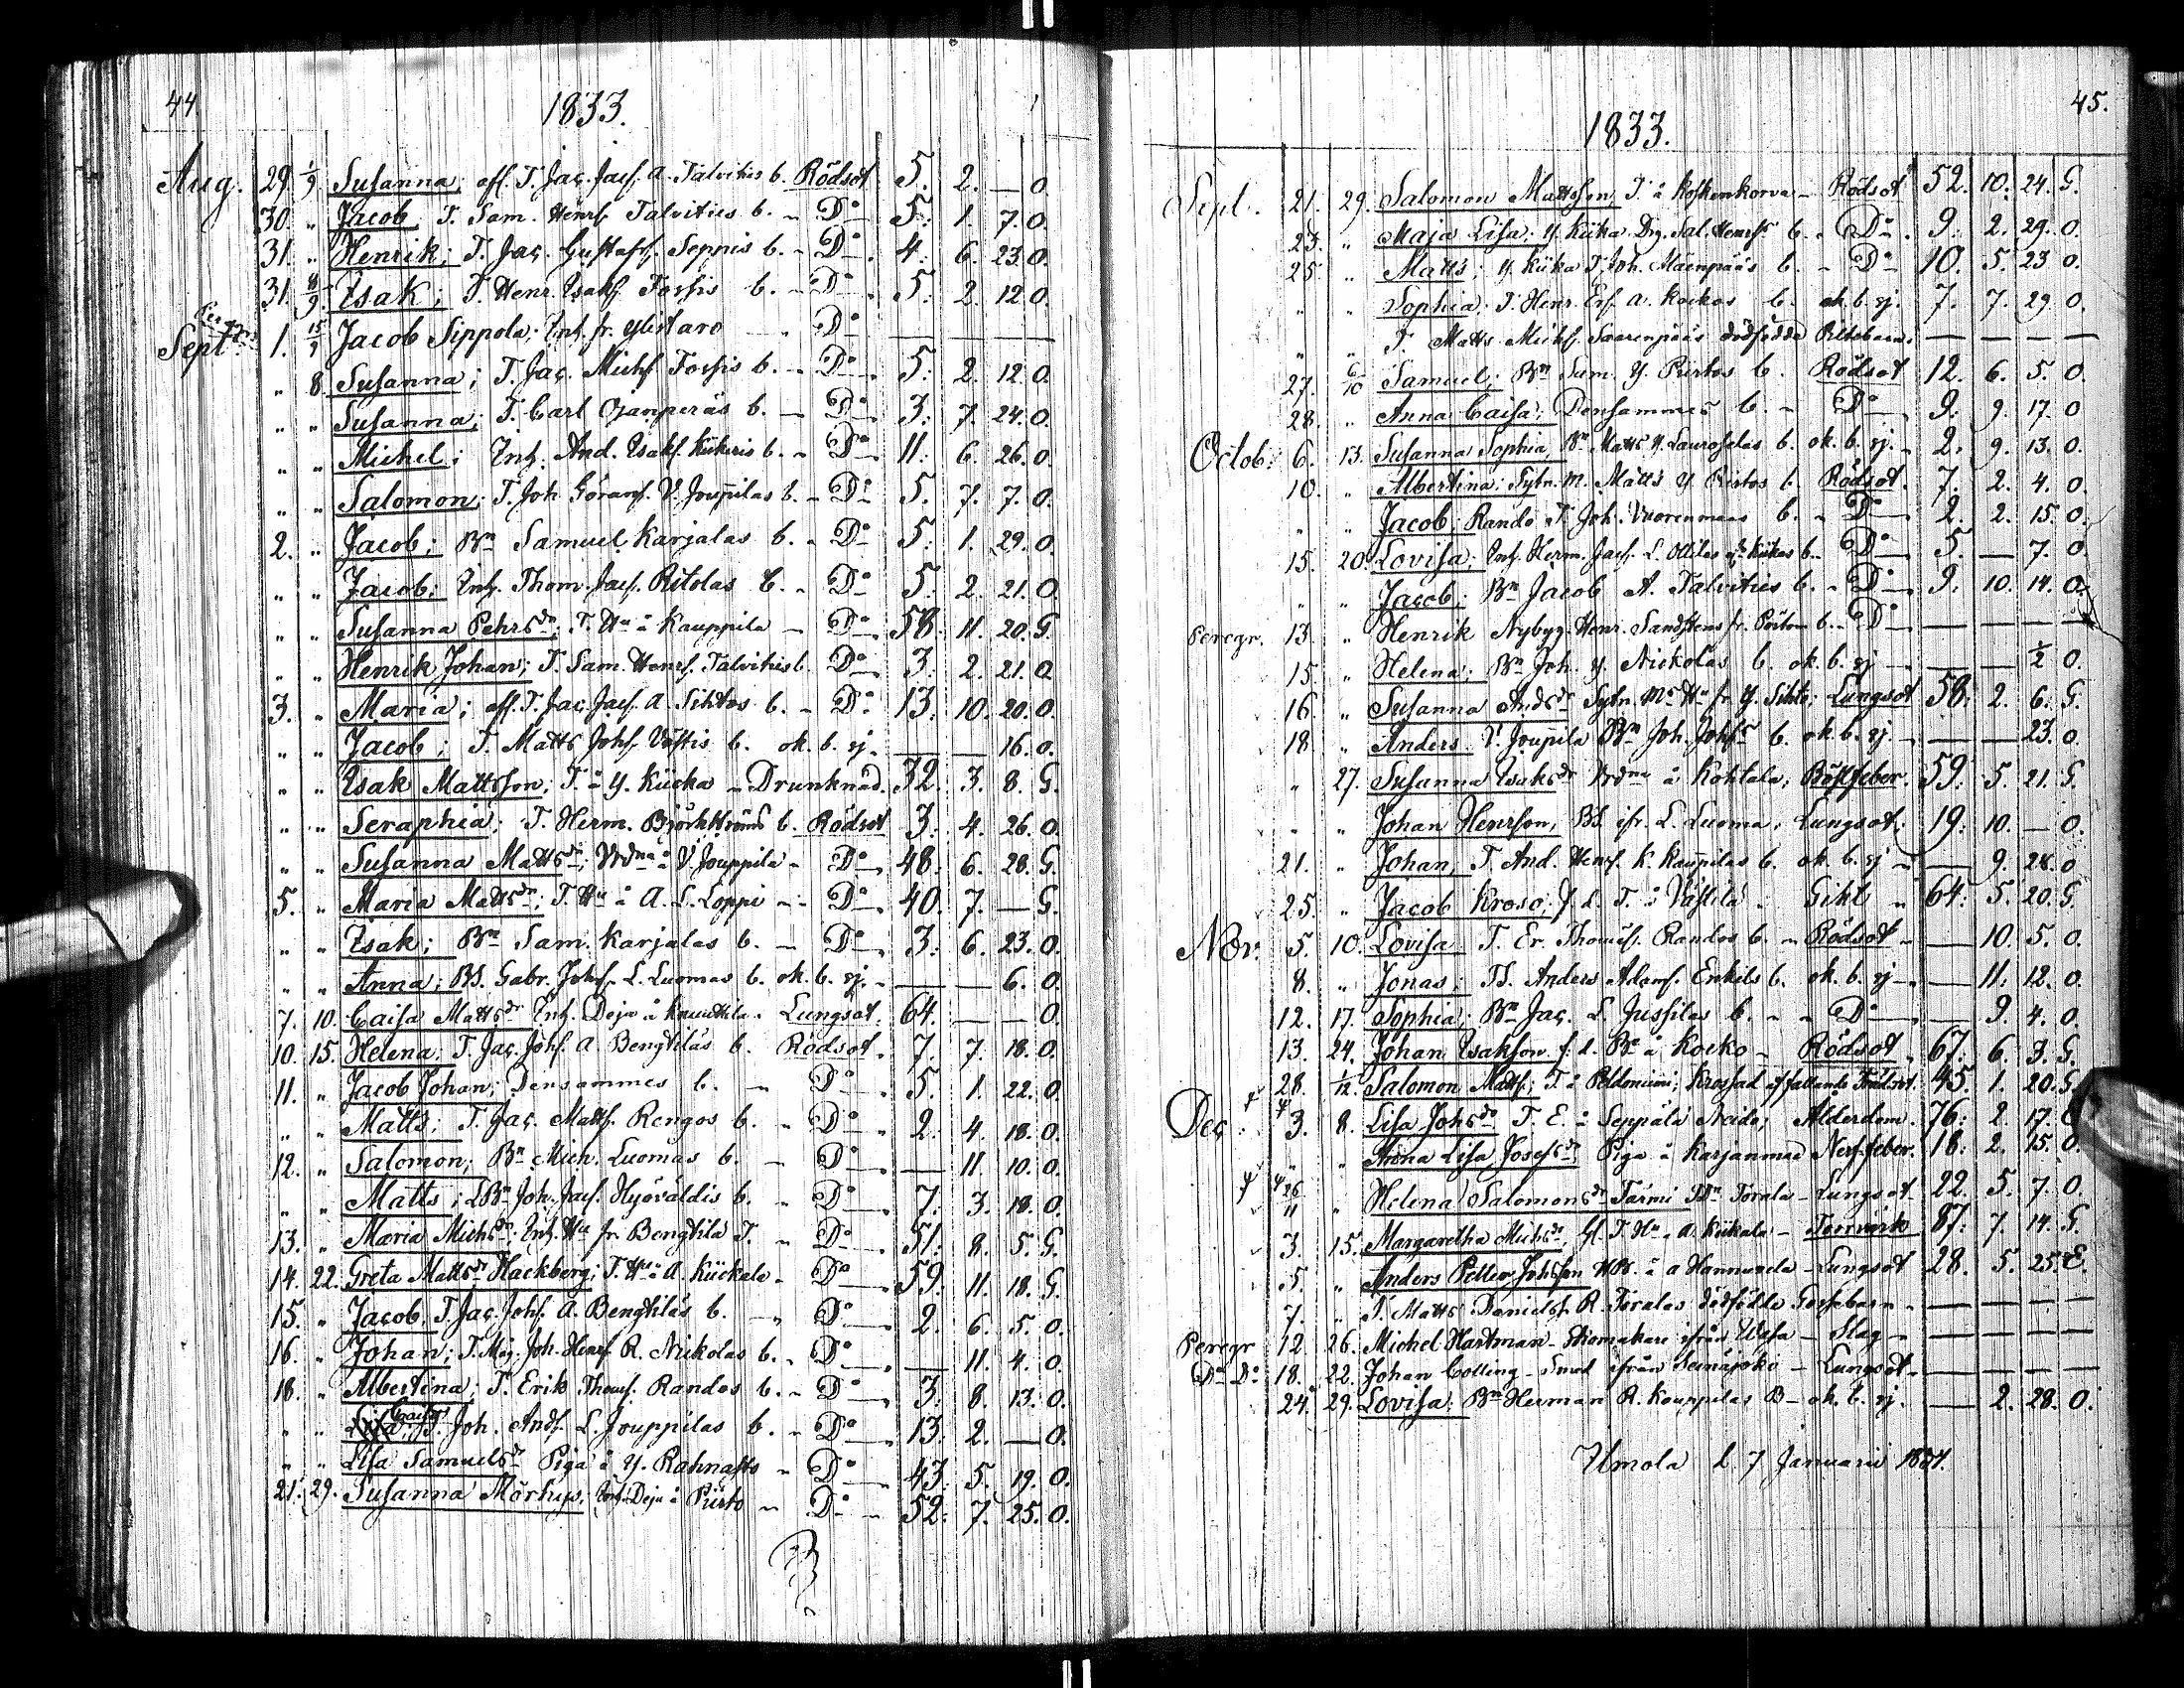 44.
1833.
Aug. 29. 1/9 Susanna; T. Jac. Jacs. A. Talvities b. Rödsot 5. 2. — O
30. " Jacob; T. Sam. Henrs. Talvities b. - Do 5. 1. 7. O.
31. " Henrik; T. Jac. Gustafs. Seppis b. - Do 4. 6. 23. O.
31. 8/9 Isak; T. Henr. Isaks. Forsis b. - Do 5. 2. 12. O.
Peregr. Sept. 1. 15/9 Jacob Sippola; Inh. fr. Ylistaro - Do — — —
" 8. Susanna; T. Jac. Michs. Forsis b. - Do 5. 2. 12. O.
" " Susanna; T. Carl Ojanperäs b. - Do 3. 7. 24. O.
" " Michel; Inh. And. Isaks. b. - Do 11. 6. 26. O.
" " Salomon; T. Joh. Görans. V. Jouppilas b. - Do 5. 7. 7. O.
2. " Jacob; Bn Samuel Karjalas b. - Do 5. 1. 29. O.
" " Jacob; Inh. Thom. Jacs. Ritolas b. - Do 5. 2. 21. O.
" " Susanna Pehrsdr T. Hu å Kauppila - Do 58. 11. 20. G.
" " Henrik Johan; T. Sam. Henrs. Talvities b. Do 3. 2. 21. O.
3. " Maria; aff. T. Jac. Jacs. A. Sihtos b. - Do 13. 10. 20. O.
" " Jacob; T. Matts Johs. b. ok. b. sj. — — 16. O.
" " Isak Mattsson; T. å Y. Kiicka - Drunknad. 32. 3. 8. G.
" " Seraphia; T. Herm. Björkströms b. Rödsot 3. 4. 26. O.
" " Susanna Mattsdr; å V. Jouppila - Do 48. 6. 28. G.
5. " Maria Mattsdr; T. Hu å A. L. Loppi - Do 40. 7. — G.
" " Isak; Bn Sam. Karjalas b. - Do 3. 6. 23. O.
" " Anna; BS. Gabr. Johs. L. Luomas b. ok. b. sj. — — 6. O.
7. 10. Caisa Mattsdr Inh. Deja å Lungsot. 64. — — O.
10. 15. Helena; T. Jac. Johs. A. Bengtiläs b. Rödsot. 7. 7. 18. O.
11. " Jacob Johan; Densammes b. - Do 5. 1. 22. O.
" " Matts; T. Jac. Matts. Rengos b. - Do 2. 4. 18. O.
12. " Salomon; Bn Mich. Luomas b. - Do — 11. 10. O.
" " Matts; Joh. Jacs. Hyöväldis b. - Do 7. 3. 18. O.
13. " Maria Michsdr; Inh. Hu fr. Bengtilä T. - Do 51. 8. 5. G.
14. 22. Greta Mattsdr Hackberg; T. Hu å A. Kiickala - Do 59. 11. 18. G.
15. " Jacob, T. Jac. Johs. A. Bengtiläs b. - Do 2. 6. 5. O.
16. " Johan; T. Joh. Henrs. R. Nickolas b. - Do — 11. 4. O.
18. " Albertina; T. Erik Thoms. Randos b. - Do 3. 8. 13. O.
" " Caisa T. Joh. Ands. L. Jouppilas b. - Do 13. 2. — O.
" " Lisa Samuelsdr Piga å Y. Rahnasto - Do 43. 5. 19. O.
21. 29. Susanna Mörkys; Inh. Deja å Piirto - Do 52. 7. 25. O.
45.
1833.
Sept. 21. 29. Salomon Mattsson; T. å Koskenkorva - Rödsot 52. 10. 24. G.
23. " Maja Lisa; Y. Kiika Drg. Sal. Henrss b. - Do 9. 2. 29. O.
25. " Matts; Y. Kiika T. Joh. Mäenpääs b. - Do 10. 5. 23. O.
" " Sophia; T. Henr. Ers. A. Kockos b. ok. b. sj. 7. 7. 29. O.
" " T. Matts Michs. Saarenpääs dödfödda Piltebarn. — — —
27. 6/10 Samuel; Bn Sam. Y. Piirtos b. Rödsot 12. 6. 5. O.
28. " Anna Caisa; Densammes b. - Do 9. 9. 17. O
Octob. 6. 13. Susanna Sophia, Bn Matts Y. b. ok. b. sj. - 2. 9. 13. O.
10. " Albertina; Sytn. M. Matts Y. Piirtos b. Rödsot. 7. 2. 4. O.
" " Jacob; Rando T. Joh. Vuorenmaas b. - Do 2. 2. 15. O.
15. 20. Lovisa; Inh. Herm. Jacs. L. Ollilas b. - Do 5. — 7. O
" " Jacob; Bn Jacob A. Talvities b. - Do 9. 10. 14. O.
Peregr. 13. " Henrik Nybyg. Henr. Sandstens fr. Pörtom b. - Do — — —
15. " Helena; Bn Joh. Y. Nickolas b. ok. b. sj — — 1/2 O.
16. " Susanna Andsdr Sytn. Ms Hu fr. Y. Sihto; Lungsot 58. 2. 6. G.
18. " Anders; V. Joupila Bn Joh. Johss b. ok. b. sj. — — 23. O.
" 27. Susanna Isaksdr å Kohtala; Bröstfeber. 59. 5. 21. G.
" " Johan Henrson; BS. ifr. L. Luoma; Lungsot; 19. 10. — O.
21. " Johan; T. And. Henrs. K. Kaupilas b. ok. b. sj — 9. 28. O
25. " Jacob Kroso; f. d. T. å Gikt " 64. 5. 20. G.
Nov. 5. 10. Lovisa; T. Er. Thoms. Randos b. - Rödsot — 10. 5. O.
8. " Jonas; Anders Adams. Enkels b. ok. b. sj — 11. 12. O.
12. 17. Sophia; Bn Jac. L. Jussilas b. - Do — 9. 4. O.
13. 24. Johan Isakson f. d. Bn å Kocko - Rödsot 67. 6. 3. G.
28. 1/12 Salomon Matts; T. å Peldoniemi; Krossad af fallande Träd 45. 1. 20. G
Dec. 3. 8. Lisa Johsdr T. E. å Seppälä Ålderdom. 76. 2. 17.
" " Lisa Josefsdr Piga å Karjanmaa Nerffeber. 18. 2. 15. O.
" Helena Salomonsdr Törmi Torala - Lungsot 22. 5. 7. O.
3. 15. Margaretha Michsdr; T. Hu A. Kiikala - Torrvärk 87. 7. 14. G.
5. " Anders Petter Johsson å A Hannuxela - Lungsot 28. 5. 25. E.
7. " T. Matts Daniels. R. Toralas dödfödde Gossebarn — — —
Peregr 12. 26. Michel Hartman - Skomakare ifrån Wasa - Slag — — —
Do Do 18. 22. Johan Colling - Smed ifrån Seinäjoki - Lungsot — — —
24. 29. Lovisa; Bn Herman R. Kauppilas B - ok. b. sj. — 2. 28. O.
Ilmola d. 7 Januarii 1834.